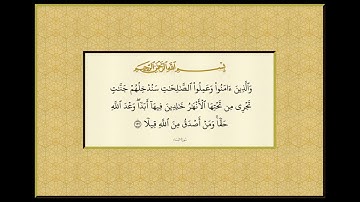 بِسْمِ ٱللَّهِ ٱلرَّحْمَٰنِ ٱلرَّحِيمِ
وَٱلَّذِينَ ءَامَنُوا۟ وَعَمِلُوا۟ ٱلصَّٰلِحَٰتِ سَنُدْخِلُهُمْ جَنَّٰتٍ
تَجْرِى مِن تَحْتِهَا ٱلْأَنْهَٰرُ خَٰلِدِينَ فِيهَآ أَبَدًا ۖ وَعْدَ ٱللَّهِ
حَقًّا ۚ وَمَنْ أَصْدَقُ مِنَ ٱللَّهِ قِيلًا ﴿١٢٢﴾